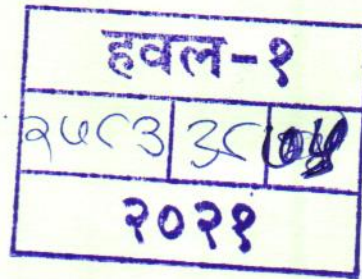 हवल-१
२५८३ ३८
२०२१